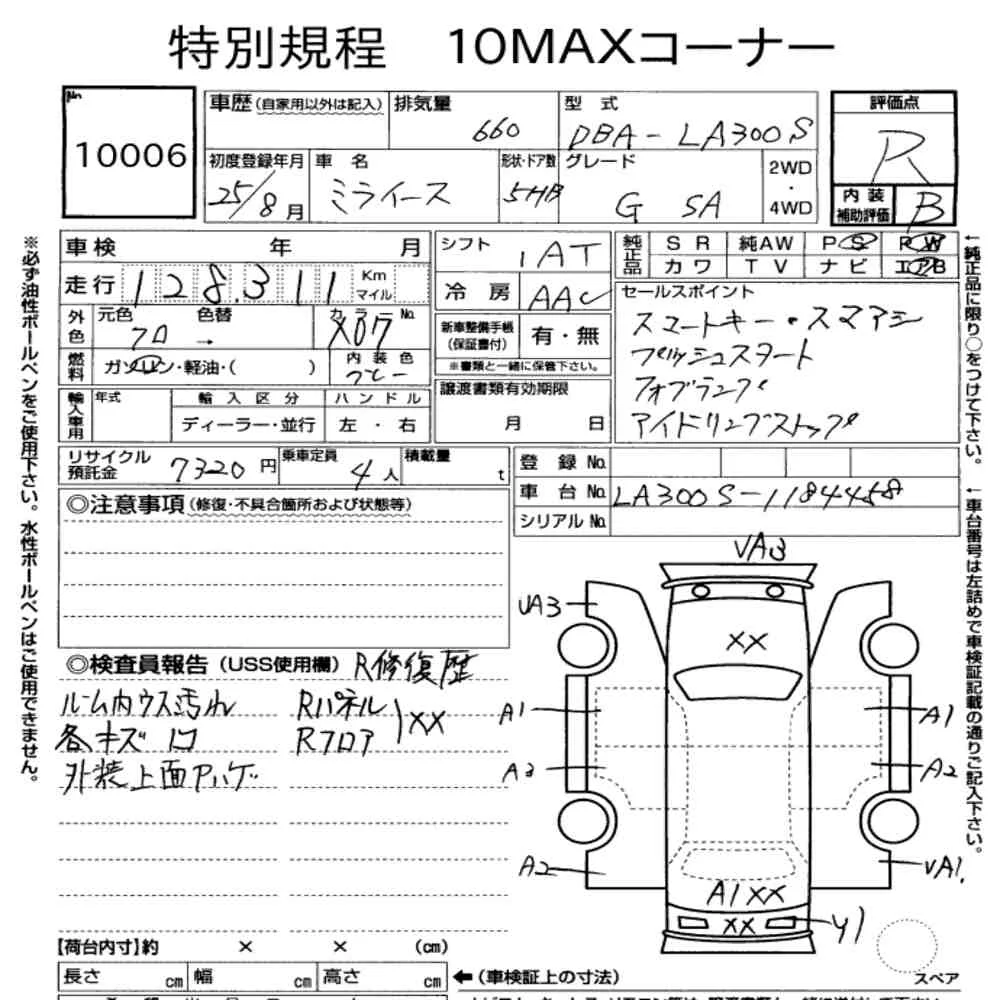 特別規程 10MAXコーナー
No.
10006
車歴(自家用以外は記入)
排気量
660
型 式
DBA-LA300S
評価点
R
初度登録年月
25/8月
車 名
ミライース
形状・ドア数
5HB
グレード
G SA
2WD
・
4WD
内装
補助評価
B
※必ず油性ボールペンをご使用下さい。水性ボールペンはご使用できません。
車検 年 月
走行 128,311 Km
マイル
シフト
IAT
冷房
AAC
純正品
SR 純AW PS PW
カワ TV ナビ エアB
←純正品に限り○をつけて下さい。
外色
元色 色替
クロ →
カラーNo.
X07
燃料
ガソリン・軽油・( )
内装色
グレー
新車整備手帳
(保証書付)
有・無
※書類と一緒に保管下さい。
セールスポイント
スマートキー・スマアシ
プッシュスタート
フォグランプ
アイドリングストップ
輸入車用
年式
輸入区分
ディーラー・並行
ハンドル
左・右
譲渡書類有効期限
月 日
リサイクル
預託金
7320円
乗車定員
4人
積載量
t
登録No.
車台No. LA300S-1184458
シリアルNo.
←車台番号は左詰めで車検証記載の通りご記入下さい。
◎注意事項(修復・不具合箇所および状態等)
◎検査員報告(USS使用欄) R修復歴
ルーム内ウス汚れ
各キズ凹
外装上面Pハゲ
Rパネル
Rフロア
XX
VA3
UA3
XX
A1
A3
A2
A1
A2
VA1.
A1XX
XX
Y1
スペア
【荷台内寸】約 × × (cm)
長さ cm 幅 cm 高さ cm
←(車検証上の寸法)